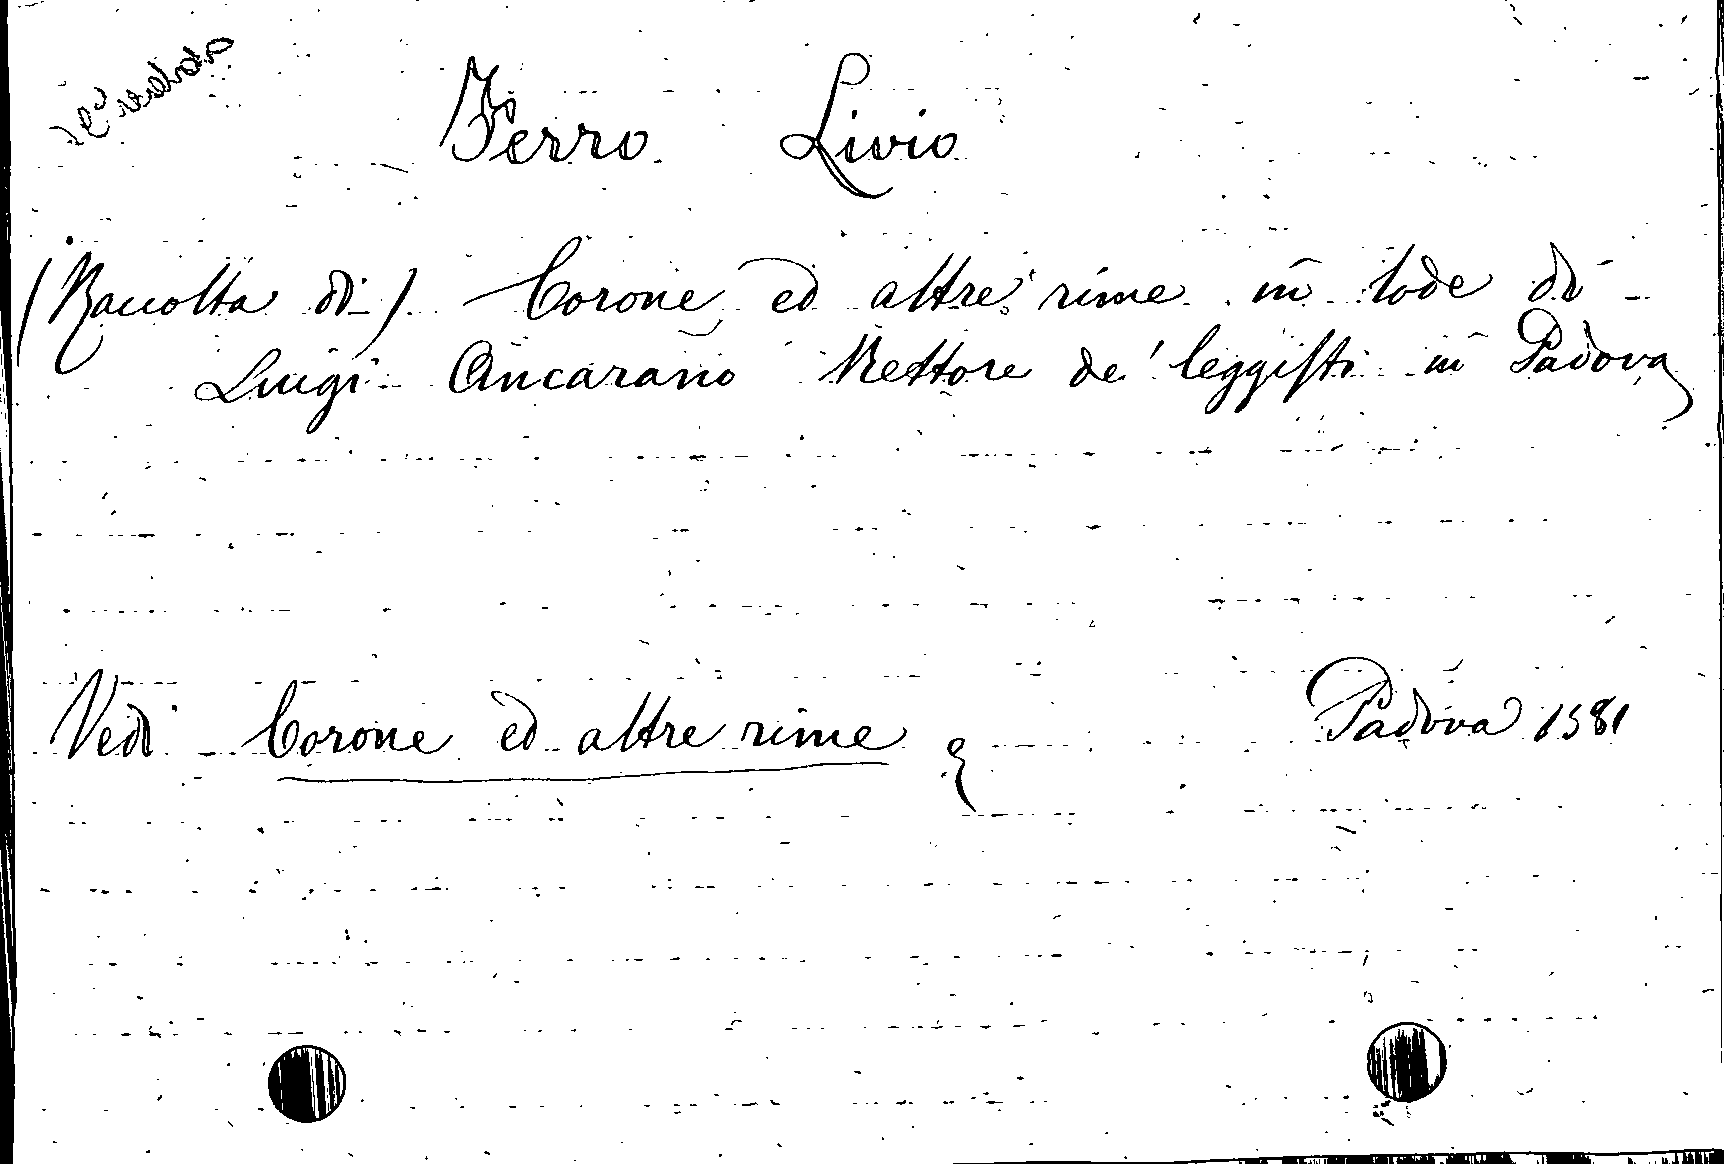 Ferro Livio
(Raccolta di) Corone ed altre rime in lode di
Luigi Ancarano Rettore de' leggisti in Padova
Vedi Corone ed altre rime Padova 1581